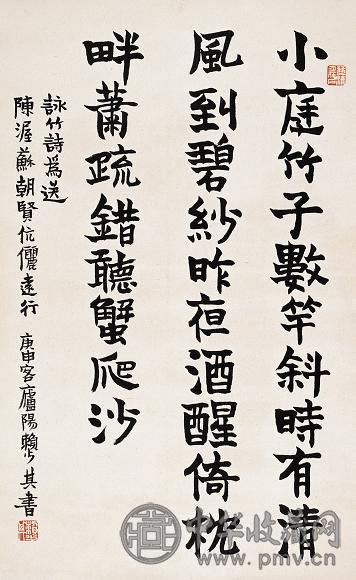 小庭竹子數竿斜時有清
風到碧紗昨夜酒醒倚枕
畔蕭疏錯聽蟹爬沙
詠竹詩爲送
陳渥蘇朝賢伉儷遠行 庚申客廬陽賴少其書
中华收藏网
www.pmv.cn